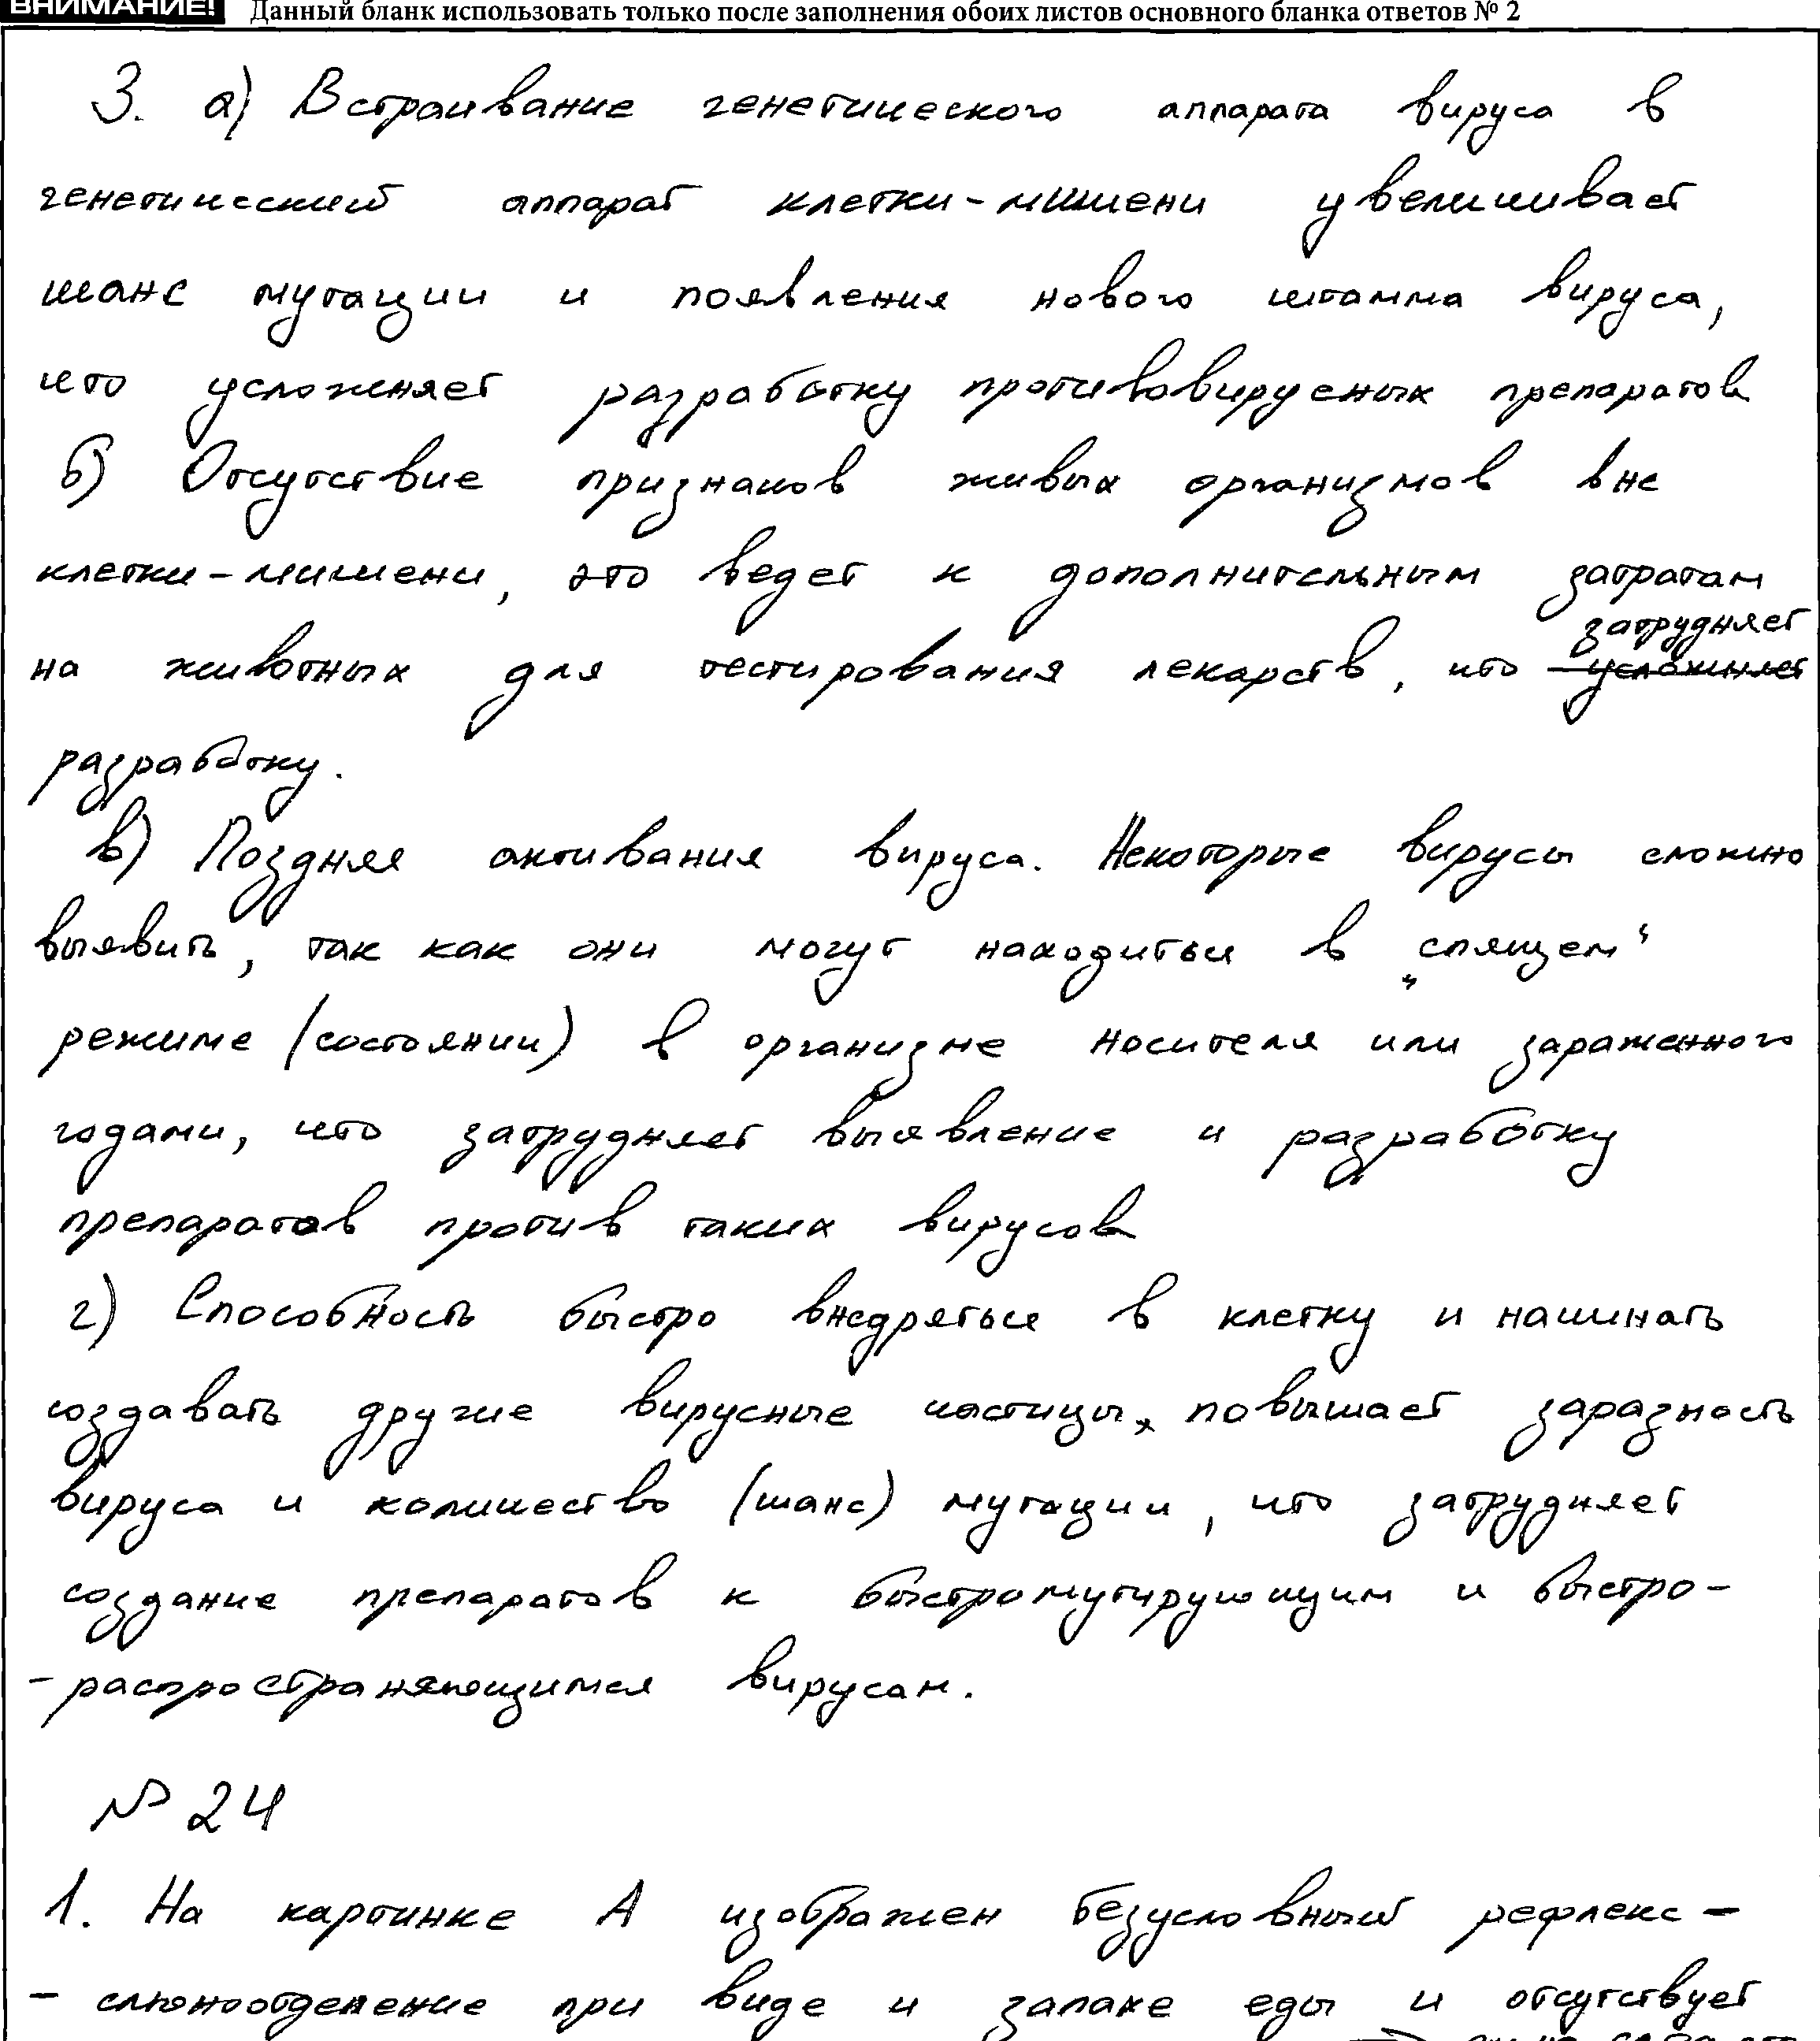 ВНИМАНИЕ! Данный бланк использовать только после заполнения обоих листов основного бланка ответов № 2
3. а) Встраивание генетического аппарата вируса в
генетический аппарат клетки-мишени увеличивает
шанс мутации и появления нового штамма вируса,
что усложняет разработку противовирусных препаратов
б) Отсутствие признаков живых организмов вне
клетки-мишени, это ведет к дополнительным затратам
на животных для тестирования лекарств, что усложняет затрудняет
разработку.
в) Поздняя активания вируса. Некоторые вирусы сложно
выявить, так как они могут находиться в „спящем“
режиме (состоянии) в организме носителя или зараженного
годами, что затрудняет выявление и разработку
препаратов против таких вирусов
г) Способность быстро внедряться в клетку и начинать
создавать другие вирусные частицы, повышает заразность
вируса и количество (шанс) мутации, что затрудняет
создание препаратов к быстромутирующим и быстро-
-распространяющимся вирусам.
№ 24
1. На картинке А изображен безусловный рефлекс –
– слюноотделение при виде и запахе еды и отсутствует